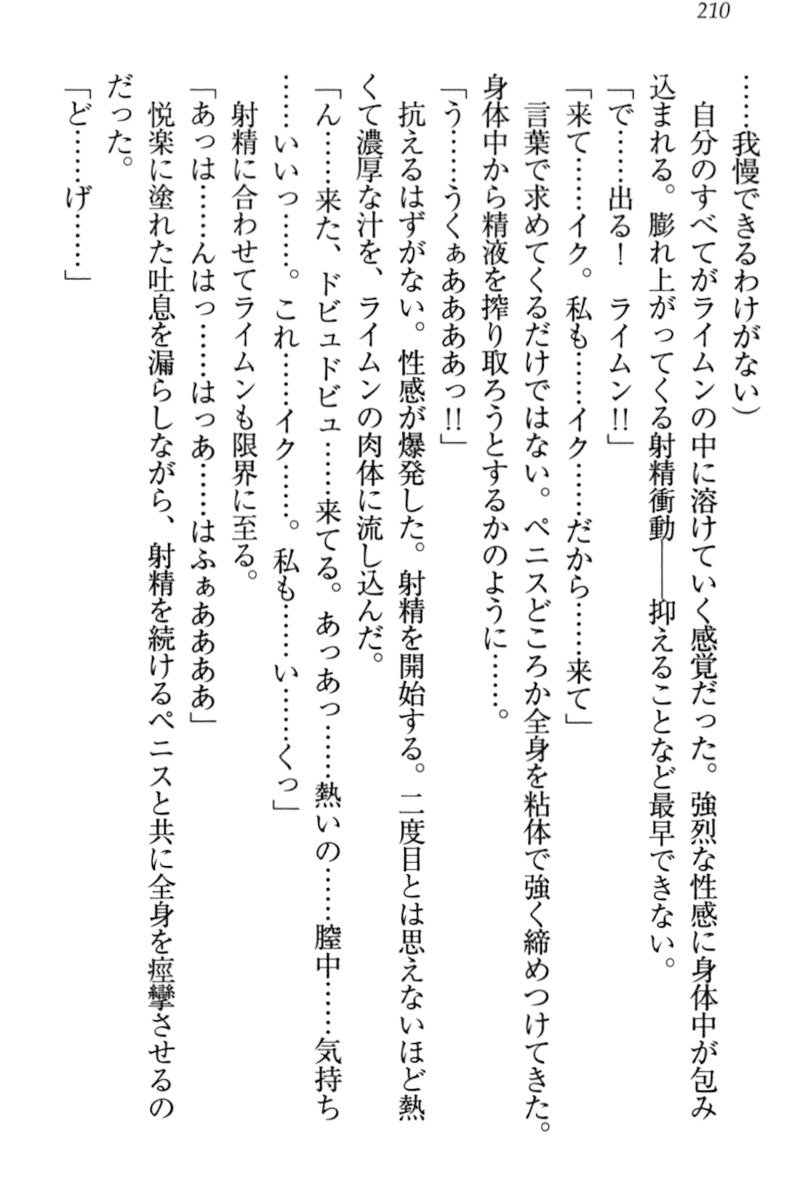 210
……我慢できるわけがない)
　自分のすべてがライムンの中に溶けていく感覚だった。強烈な性感に身体中が包み
込まれる。膨れ上がってくる射精衝動──抑えることなど最早できない。
「で……出る！　ライムン!!」
「来て……イク。私も……イク……だから……来て」
　言葉で求めてくるだけではない。ペニスどころか全身を粘体で強く締めつけてきた。
身体中から精液を搾り取ろうとするかのように……。
「う……うくぁああああっ!!」
　抗えるはずがない。性感が爆発した。射精を開始する。二度目とは思えないほど熱
くて濃厚な汁を、ライムンの肉体に流し込んだ。
「ん……来た、ドビュドビュ……来てる。あっあっ……熱いの……膣中……気持ち
……いいっ……。これ……イク……。私も……い……くっ」
　射精に合わせてライムンも限界に至る。
「あっは……んはっ……はっあ……はふぁああああ」
　悦楽に塗れた吐息を漏らしながら、射精を続けるペニスと共に全身を痙攣させるの
だった。
「ど……げ……」